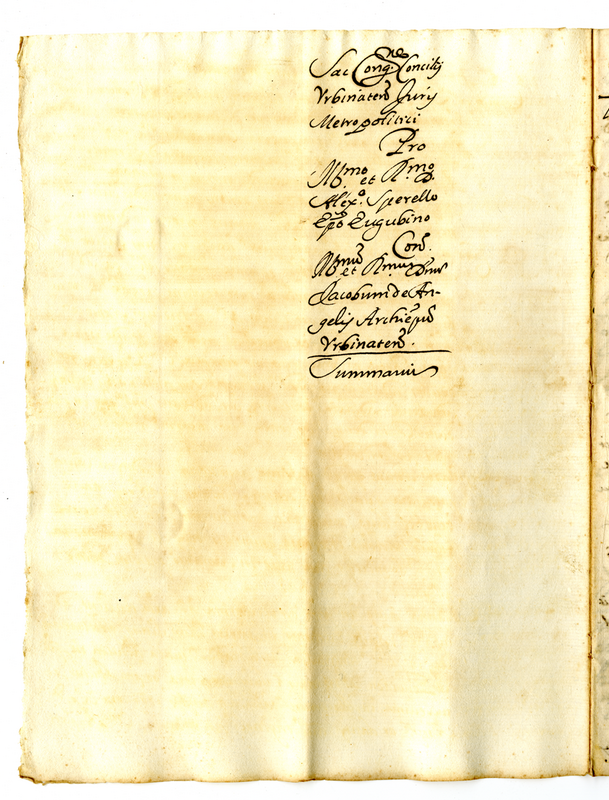 Sac Congne Concilij
Vrbinaten Juris
Metropolitici
Pro
Illmo et Rmo D.
Alexo. Sperello
Epo Eugubino
Con.
Illmum et Rmum Dnum
Jacobum de An-
gelis Archiepum
Vrbinaten.
Summariu